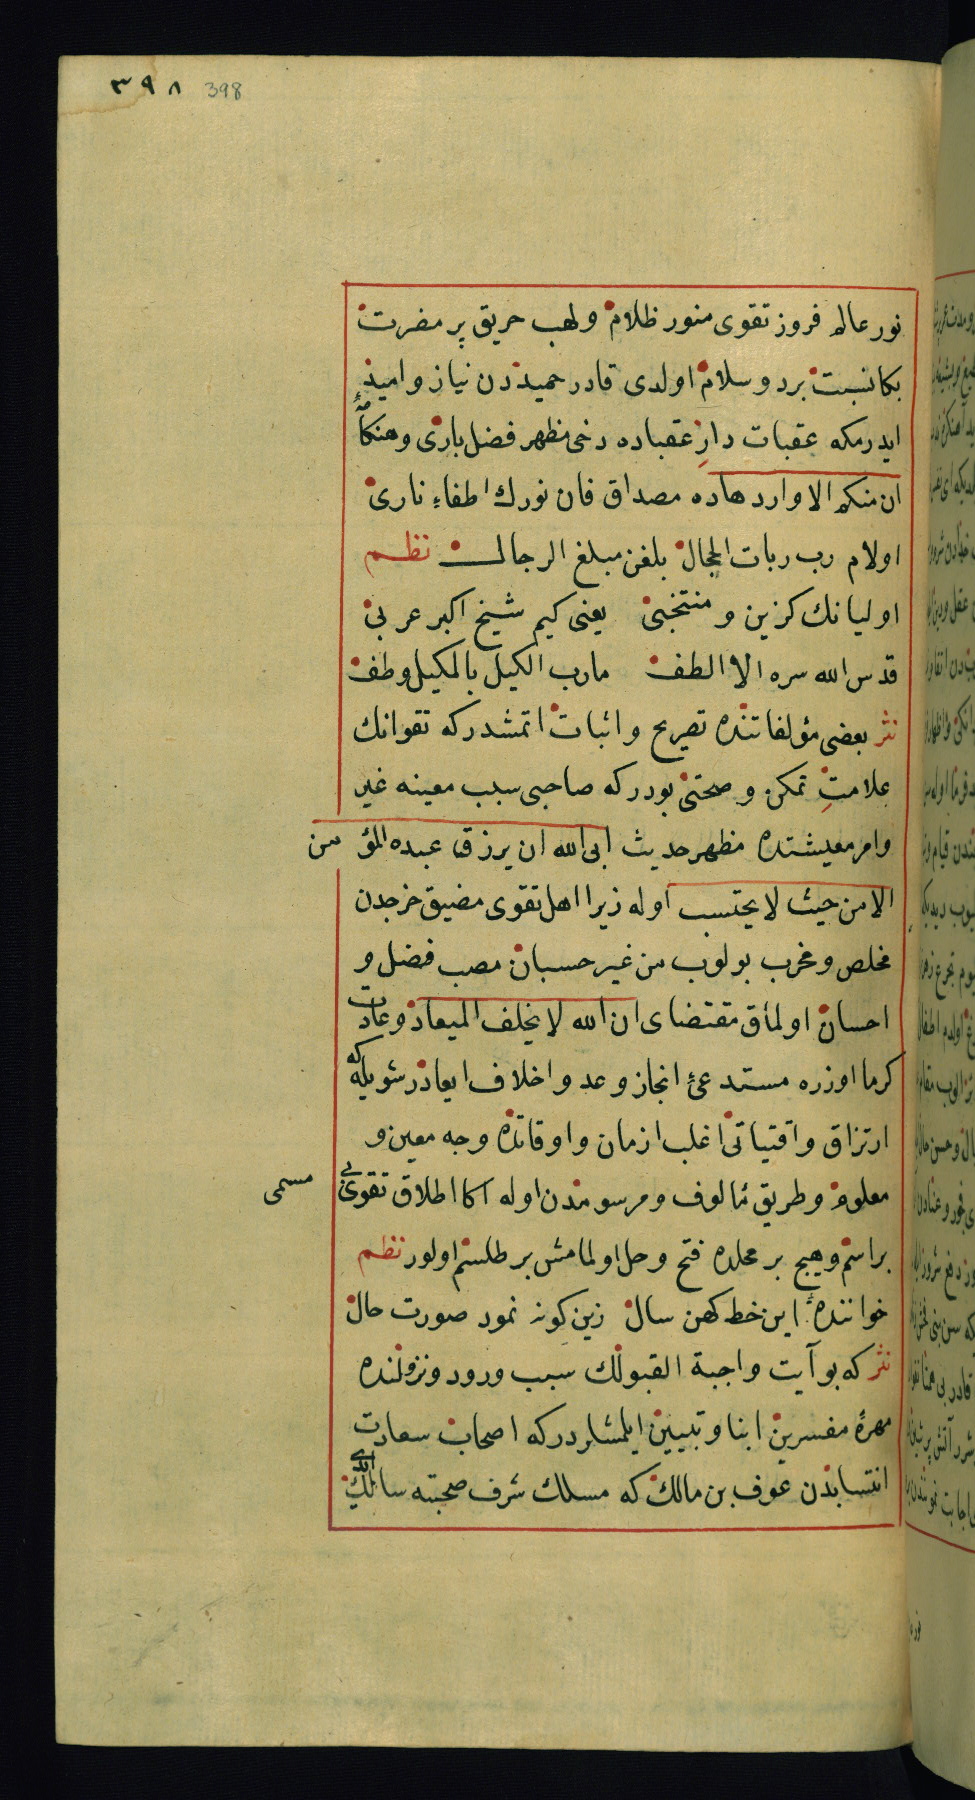 ٣٩٨ 398
نور عالم فروز تقوى منور ظلام ولهب حريق پر مضرت
بكا نسبت برد وسلام اولدى قادر حميددن نياز واميد
ايدرمكه عقبات دار عقباده دخى مظهر فضل بارى وهنكامهٔ
ان منكم الا واردهاده مصداق فان نورك اطفاء نارى
اولام رب ربات الحجال بلغن مبلغ الرجال نظم
اوليانك كزين ومنتخبى يعنى كيم شيخ اكبر عربى
قدس الله سره الالطف مارب الكيل بالمكيل وطف
نثر بعضى مؤلفاتنده تصريح واثبات اتمشدركه تقوانك
علامت تمكن وصحتى بودركه صاحبى سبب معينه غير
وامر معيشتده مظهر حديث ابى الله ان يرزق عبده المؤمن
الا من حيث لا يحتسب اوله زيرا اهل تقوى مضيق خرجدن
مخلص ومخرب بولوب من غير حسبان مصب فضل و
احسان اولمأق مقتضاى ان الله لا يخلف الميعاد وعادت
كرما اوزره مستدعئ انجاز وعد واخلاف ايعاددر شويله كه
ارتزاق واقتياتى اغلب ازمان واوقاتده وجه معين و
معلوم وطريق مألوف ومرسومدن اوله اكا اطلاق تقوى بى
مسمى
براسم وهيچ بر محلده فتح وحل اولمامش بر طلسم اولور نظم
خوانندهٔ اين خط كهن سال زين كونه نمود صورت حال
نثر كه بو آيت واجبة القبولك سبب ورود ونزولنده
مهرهٔ مفسرين ابنا وتبيين ايلمشلردركه اصحاب سعادت
انتسابدن عوف بن مالك كه مسلك شرف صحبته سالك ايدى